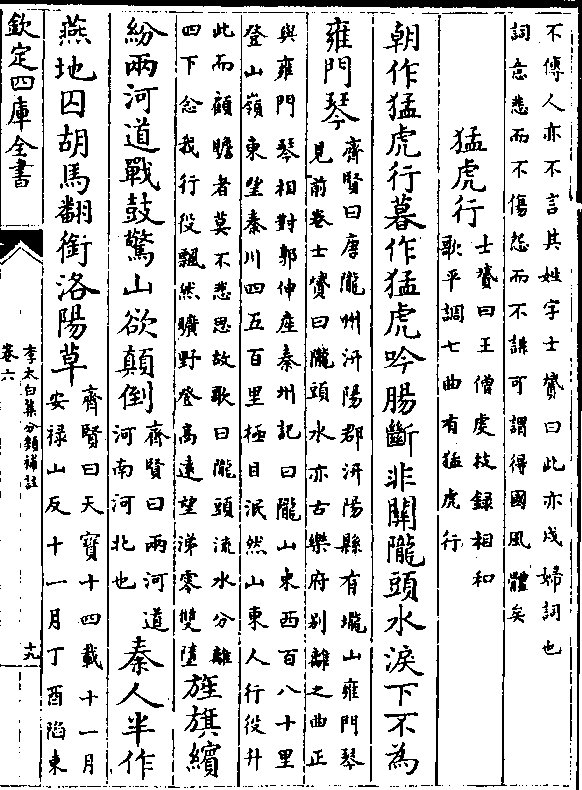 不傅人亦不言其姓字士贇曰此亦戍婦詞也
詞意悲而不傷怨而不誹可謂得國風體矣
猛虎行
士贇曰王僧虔技録相和
歌平調七曲有猛虎行
朝作猛虎行暮作猛虎吟腸斷非關隴頭水淚下不為
雍門琴
齊賢曰唐隴州汧陽郡汧陽縣有隴山雍門琴
見前卷士贇曰隴頭水亦古樂府别離之曲正
與雍門琴相對郭仲産秦州記曰隴山東西百八十里
登山嶺東望秦川四五百里極目泯然山東人行役升
此而顧瞻者莫不悲思故歌曰隴頭流水分離
四下念我行役飄然曠野登高逺望涕零雙墮
旌旗繽
紛兩河道戰鼓驚山欲顛倒
齊賢曰兩河道
河南河北也
秦人半作
燕地囚胡馬翻銜洛陽草
齊賢曰天寳十四載十一月
安禄山反十一月丁酉陷東
欽定四庫全書
李太白集分類補註
卷六
十九